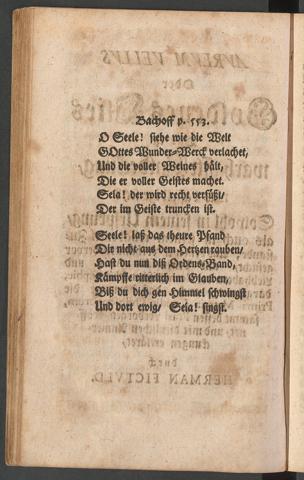 Bachoff p. 553.
O Seele! siehe wie die Welt
GOttes Wunder-Werck verlachet,
Und die voller Weines hält,
Die er voller Geistes machet.
Sela! der wird recht versüßt/
Der im Geiste truncken ist.
Seele! laß das theure Pfand
Dir nicht aus dem Hertzen rauben/
Hast du nun diß Ordens-Band,
Kämpffe ritterlich im Glauben,
Biß du dich gen Himmel schwingst
Und dort ewig/ Sela! singst.